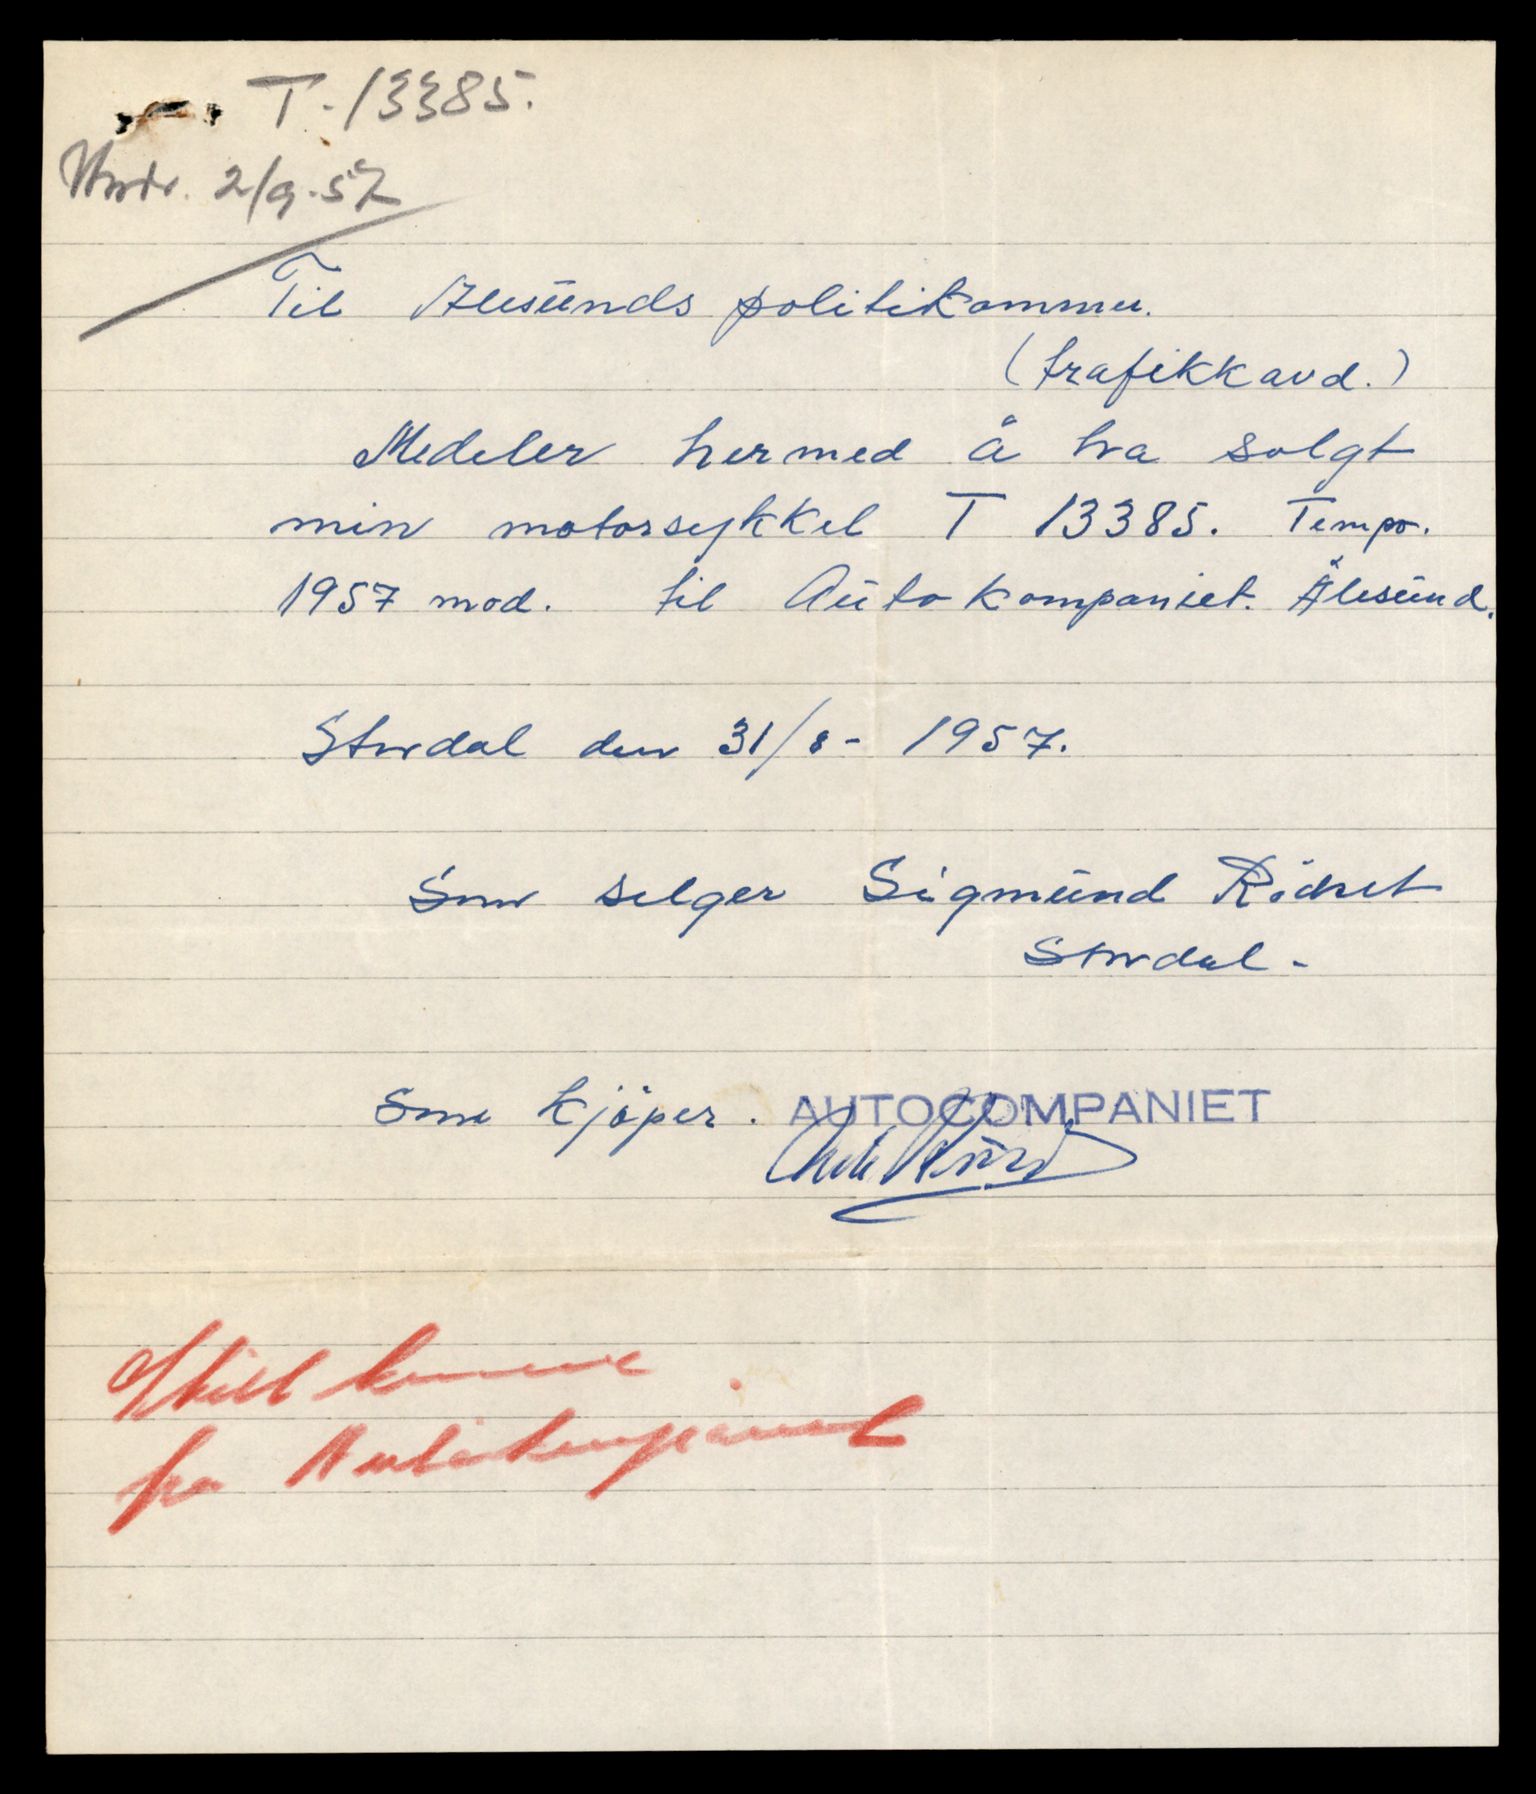 T-13385.
2/9-57
Til Ålesunds politikammer.
(trafikkavd.)
Medeler hermed å ha solgt
min motorsykkel T 13385. Tempo.
1957 mod. til Autokompaniet. Ålesund.
Stordal den 31/8 - 1957.
Som selger Sigmund
Stordal -
Som kjøper. AUTOCOMPANIET
Skilt
fra Autokompaniet